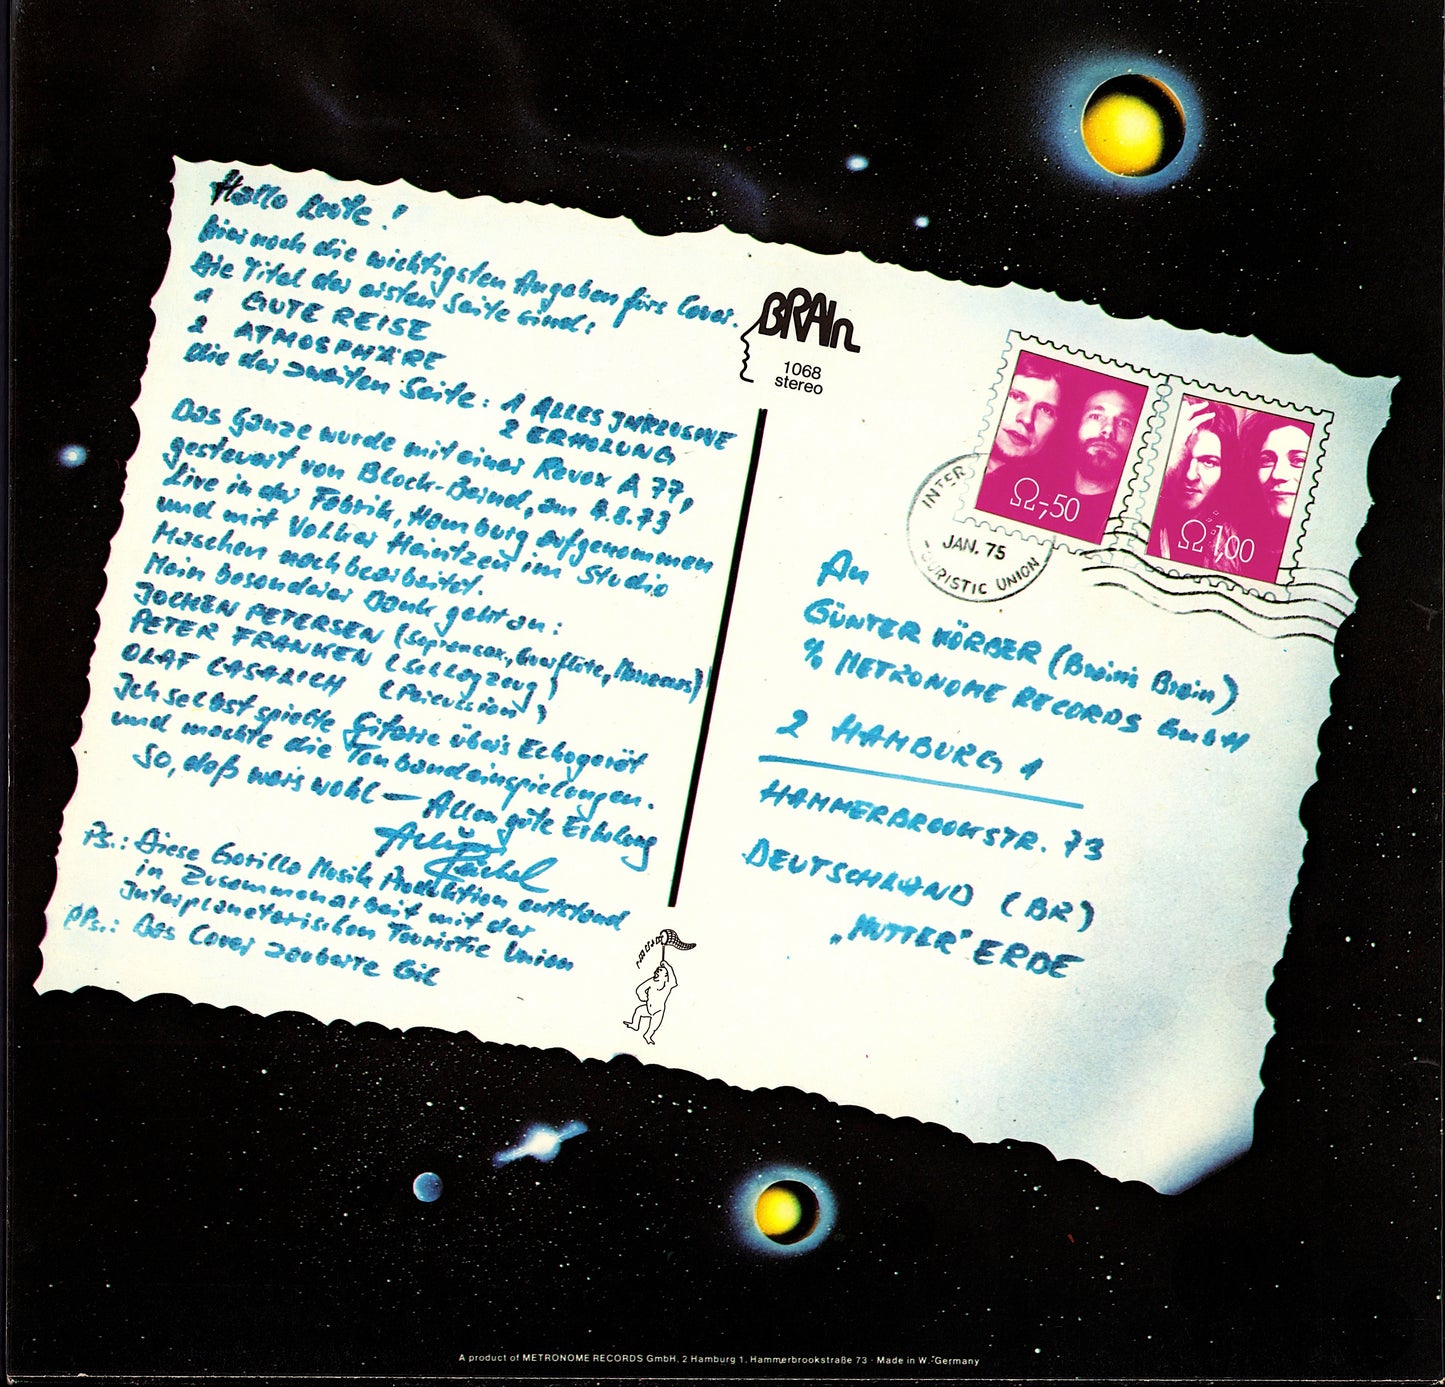 Hallo Leute!
hier noch die wichtigsten Angaben fürs Cover.
Die Titel der ersten Seite sind:
1 GUTE REISE
2 ATMOSPHÄRE
die der zweiten Seite: 1 ALLES INKLUSIVE
2 ERHOLUNG
Das ganze wurde mit einer Revox A 77,
gesteuert von Block-Bernd, am 4.8.73
Live in der Fabrik, Hamburg aufgenommen
und mit Volker Heintzen im Studio
Maschen nachbearbeitet.
Mein besonderer Dank geht an:
JOCHEN PETERSEN (Sopransax, Querflöte,
PETER FRANKEN (Schlagzeug)
OLAF CASALICH (Percussion)
Ich selbst spielte Gitarre übers Echogerät
und machte die Tonbandeinspielungen.
So, daß wars wohl — Allen gute Erholung
Achim Reichel
Ps.: Diese Gorilla Musik Produktion entstand
in Zusammenarbeit mit der
Interplanetarischen Touristic Union
PPs.: Das Cover zauberte
BRAIn
1068
stereo
Ω-,50
Ω 1,00
INTER
JAN. 75
-OURISTIC UNION
An
GÜNTER KÖRBER (Brain's Brain)
% METRONOME RECORDS GmbH
2 HAMBURG 1
HAMMERBROOKSTR. 73
DEUTSCHLAND (BR)
„MUTTER" ERDE
A product of METRONOME RECORDS GmbH, 2 Hamburg 1, Hammerbrookstraße 73 · Made in W.-Germany